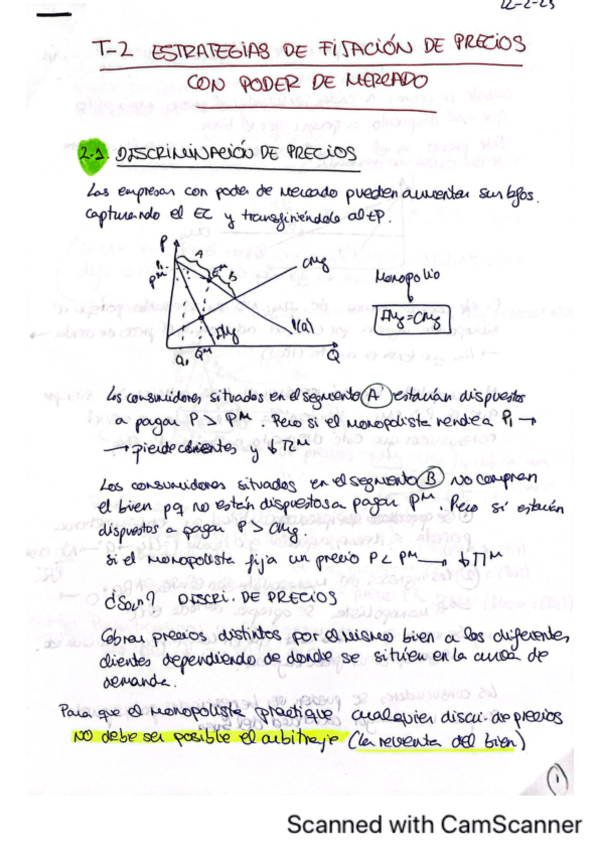 12-2-23
T-2 ESTRATEGIAS DE FIJACIÓN DE PRECIOS
CON PODER DE MERCADO
2.1. DISCRIMINACIÓN DE PRECIOS
Las empresas con poder de mercado pueden aumentar sus bfos.
capturando el EC y transfiriéndolo al EP.
P
A
P₁
Pᴹ
Eᴹ
B
CMg
IMg
P(Q)
Q₁ Qᴹ
Q
Monopolio
IMg = CMg
Los consumidores situados en el segmento A estarían dispuestos
a pagar P > Pᴹ. Pero si el monopolista vende a P₁ →
→ pierde clientes y ↓πᴹ
Los consumidores situados en el segmento B no compran
el bien pq no están dispuestos a pagar Pᴹ. Pero sí estarían
dispuestos a pagar P > CMg.
Si el monopolista fija un precio P < Pᴹ → ↓πᴹ
¿Socn? DISCRI. DE PRECIOS
Cobrar precios distintos por el mismo bien a los diferentes
clientes dependiendo de donde se sitúen en la curva de
demanda.
Para que el monopolista practique cualquier discri. de precios
NO debe ser posible el arbitraje (la reventa del bien)
1
Scanned with CamScanner